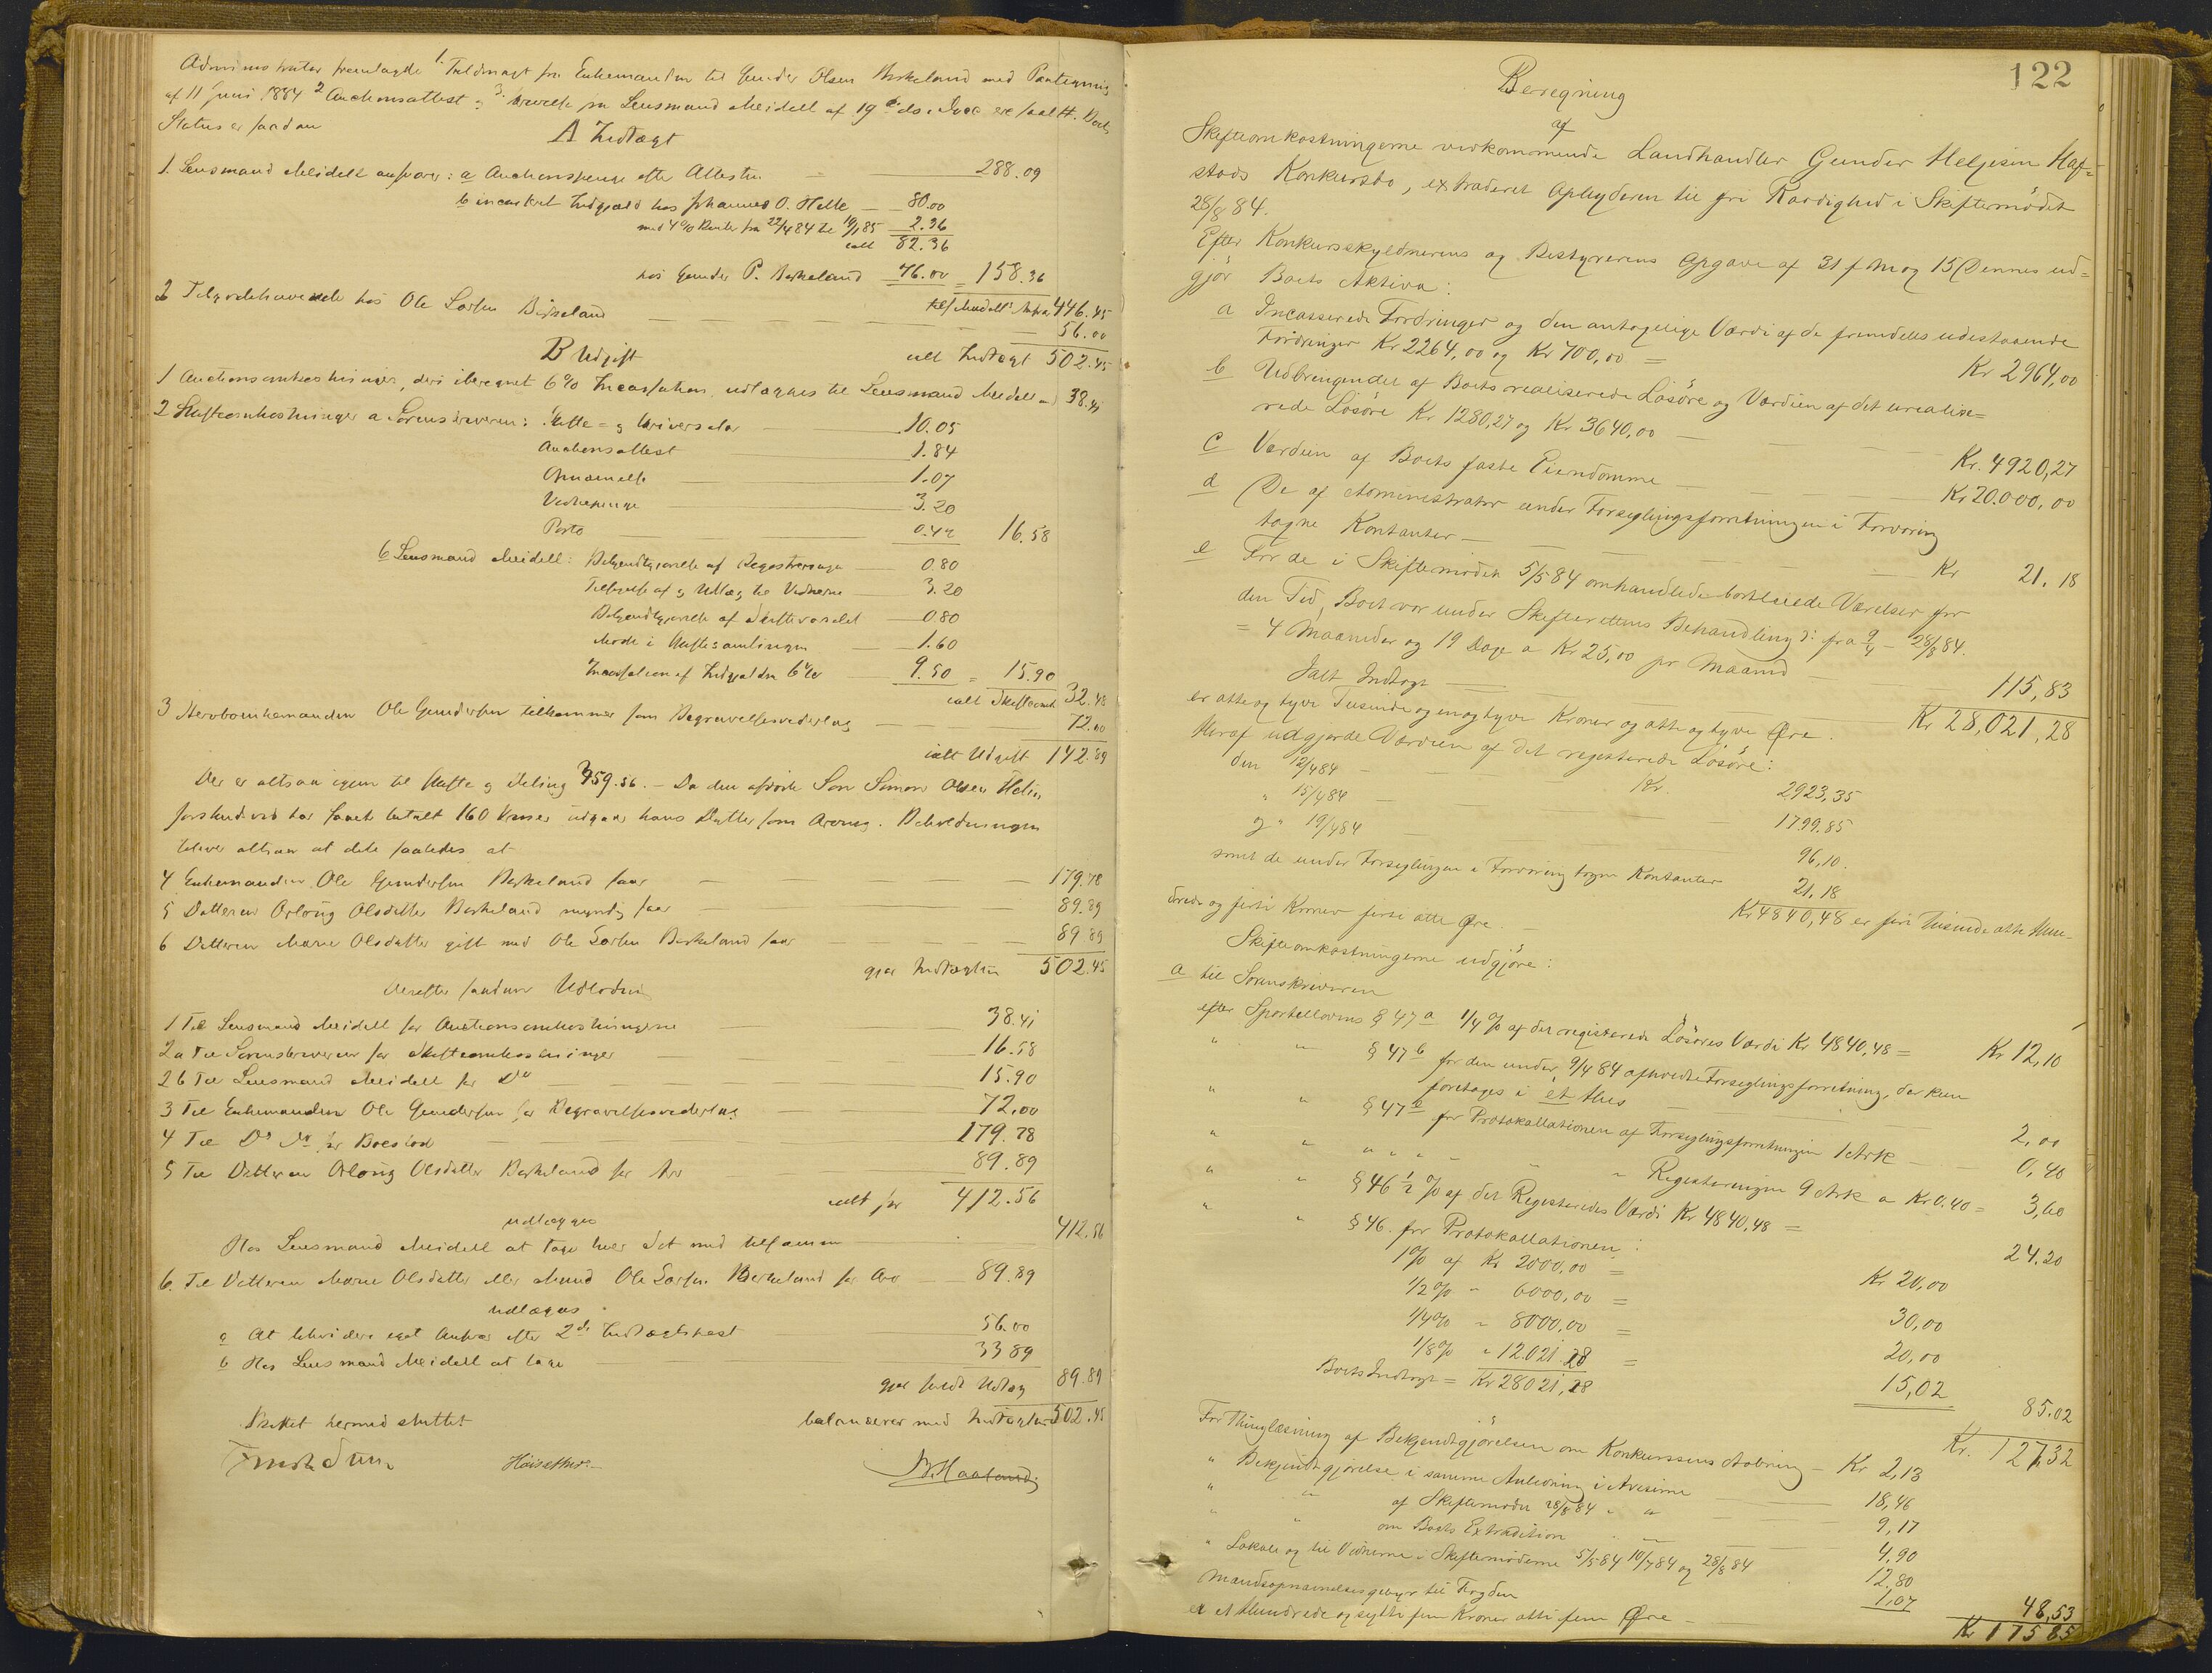 Administrator fremlagde 1. Fuldmagt fra Enkemanden til Gunder Olsen Birkeland med Paategning
af 11 Juni 1884 2 Auctionsattest og 3. Skrivelse fra Lensmand Meidell af 19de ds.
Status er saadan
A Indtægt
1. Lensmand Meidell ansvarer: a Auctionspenge efter Attesten 288.09
b incasseret Indgjæld hos Johannes O. Helle 80.00
med 4% Renter fra 22/4 84 til 10/1 85 2.36
ialt 82.36
hos Gunder P. Birkeland 76.00 = 158.36
tils Meidells Ansvar 446.45
2 Tilgodehavende hos Ole Larsen Birkeland 56.00
ialt Indtægt 502.45
B Udgift
1 Auctionsomkostninger, deri iberegnet 6% Incassation, udlægges til Lensmand Meidell med 38.41
2 Skifteomkostninger a Sorenskriveren: Skifte- og Skriversalær 10.05
Auctionsattest 1.84
Opnævnelse 1.07
Vidnepenge 3.20
Porto 0.42 16.58
b Lensmand Meidell: Bekjendtgjørelse af Registreringen 0.80
Tilsigelse af og Udlæg til Vidnerne 3.20
Bekjendtgjørelse af Skiftevarslet 0.80
Møde i Skiftesamlingen 1.60
Incassation af Indgjælden 6% 9.50 = 15.90
ialt Skifteomk 32.48
3 Stervboenkemanden Ole Gundersen tilkommer som Begravelsesvederlag 72.00
ialt Udgift 142.89
Der er altsaa igjen til Skifte og Deling 359.56. – Da den afdøde Søn Simon Olsen Helle
forskudsvis har faaet betalt 160 Kroner udgaar hans Datter som Arving. Beholdningen
bliver altsaa at dele saaledes at
4 Enkemanden Ole Gundersen Birkeland faar 179.78
5 Datteren Aslaug Olsdatter Birkeland myndig faar 89.89
6 Datteren Maren Olsdatter gift med Ole Larsen Birkeland faar 89.89
gjør Indtægten 502.45
Derefter saadan Udlodning
1 Til Lensmand Meidell for Auctionsomkostningerne 38.41
2a Til Sorenskriveren for Skifteomkostninger 16.58
2b Til Lensmand Meidell for Do 15.90
3 Til Enkemanden Ole Gundersen for Begravelsesvederlag 72.00
4 Til Do Do for Boeslod 179.78
5 Til Datteren Aslaug Olsdatter Birkeland for Arv 89.89
ialt for 412.56
udlægges
Hos Lensmand Meidell at tage hver Sit med tilsammen 412.56
6. Til Datteren Maren Olsdatter eller Mand Ole Larsen Birkeland for Arv 89.89
udlægges
a At likvidere eget Ansvar efter 2de Indtægtspost 56.00
b Hos Lensmand Meidell at tage 33.89
gjør fuldt Udlæg 89.89
balancerer med Indtægten 502.45
Skiftet hermed sluttet
122
Beregning
af
Skifteomkostningerne vedkommende Landhandler Gunder Heljesen Haf=
stads Konkursbo, extraderet Opbyderen til fri Raadighed i Skiftemødet
28/8 84.
Efter Konkursskyldnerens og Bestyrerens Opgave af 31 f M og 15 Dennes ud=
gjør Boets Aktiva:
a Incasserede Fordringer og den antagelige Værdi af de fremdeles udestaaende
Fordringer Kr 2264,00 og Kr 700,00 = Kr 2964,00
b Udbringendet af Boets realiserede Løsøre og Værdien af det urealise=
rede Løsøre Kr 1280,27 og Kr 3640,00 Kr. 4920,27
c Værdien af Boets faste Eiendomme Kr 20.000,00
d De af Administrator under Forseglingsforretningen i Forvaring
tagne Kontanter Kr 21,18
e For de i Skiftemødet 5/5 84 omhandlede bortleiede Værelser for
den Tid, Boet var under Skifterettens Behandling ɔ: fra 9/4 – 28/8 84.
= 4 Maaneder og 19 Dage a Kr 25,00 pr Maaned 115,83
Ialt Indtægt Kr 28,021,28
er otte og tyve Tusinde og enogtyve Kroner og otte og tyve Øre.
Heraf udgjorde Værdien af det registerede Løsøre:
den 12/4 84 Kr. 2923,35
" 15/4 84 1799.85
og " 19/4 84 96,10.
samt de under Forseglingen i Forvaring tagne Kontanter 21,18
Kr 4840,48 er fire Tusinde otte Hun-
drede og firti Kroner firti otte Øre.
Skifteomkostningerne udgjøre:
a til Sorenskriveren
efter Sportelloven § 47 a 1/4 % af det registerede Løsøres Værdi Kr 4840,48 = Kr 12,10
" " § 47 b for den under 9/4 84 afholdte Forseglingsforretning, der kun
foretages i et Hus 2,00
" " § 47 e for Protokollationen af Forseglingsforretningen 1 Ark 0,40
" " " " " " Registeringen 9 Ark a Kr 0.40 = 3,60
" " § 46 1/2 % af det Registeredes Værdi Kr 4840,48 = 24,20
" " § 46. for Protokollationen:
1% af Kr 2000,00 = Kr 20,00
1/2% " 6000,00 = 30,00
1/4% " 8000,00 = 20,00
1/8% " 12.021.28 = 15,02
Boets Indtægt = Kr 28021,28 85.02
Kr. 127,32
For Thinglæsning af Bekjendtgjørelsen om Konkursens Aabning – Kr 2,13
" Bekjendtgjørelse i samme Anledning i Aviserne 18,46
" " af Skiftemødet 28/8 84 " " 9,17
" " om Boets Extradition 4,90
" Lokale og til Vidnerne i Skiftemøderne 5/5 84 10/7 84 og 28/8 84 12.80
Mandsopnævnelsesgebyr til Fogden 1,07 48,53
er et Hundrede og sytti fem Kroner otti fem Øre – Kr 175 85